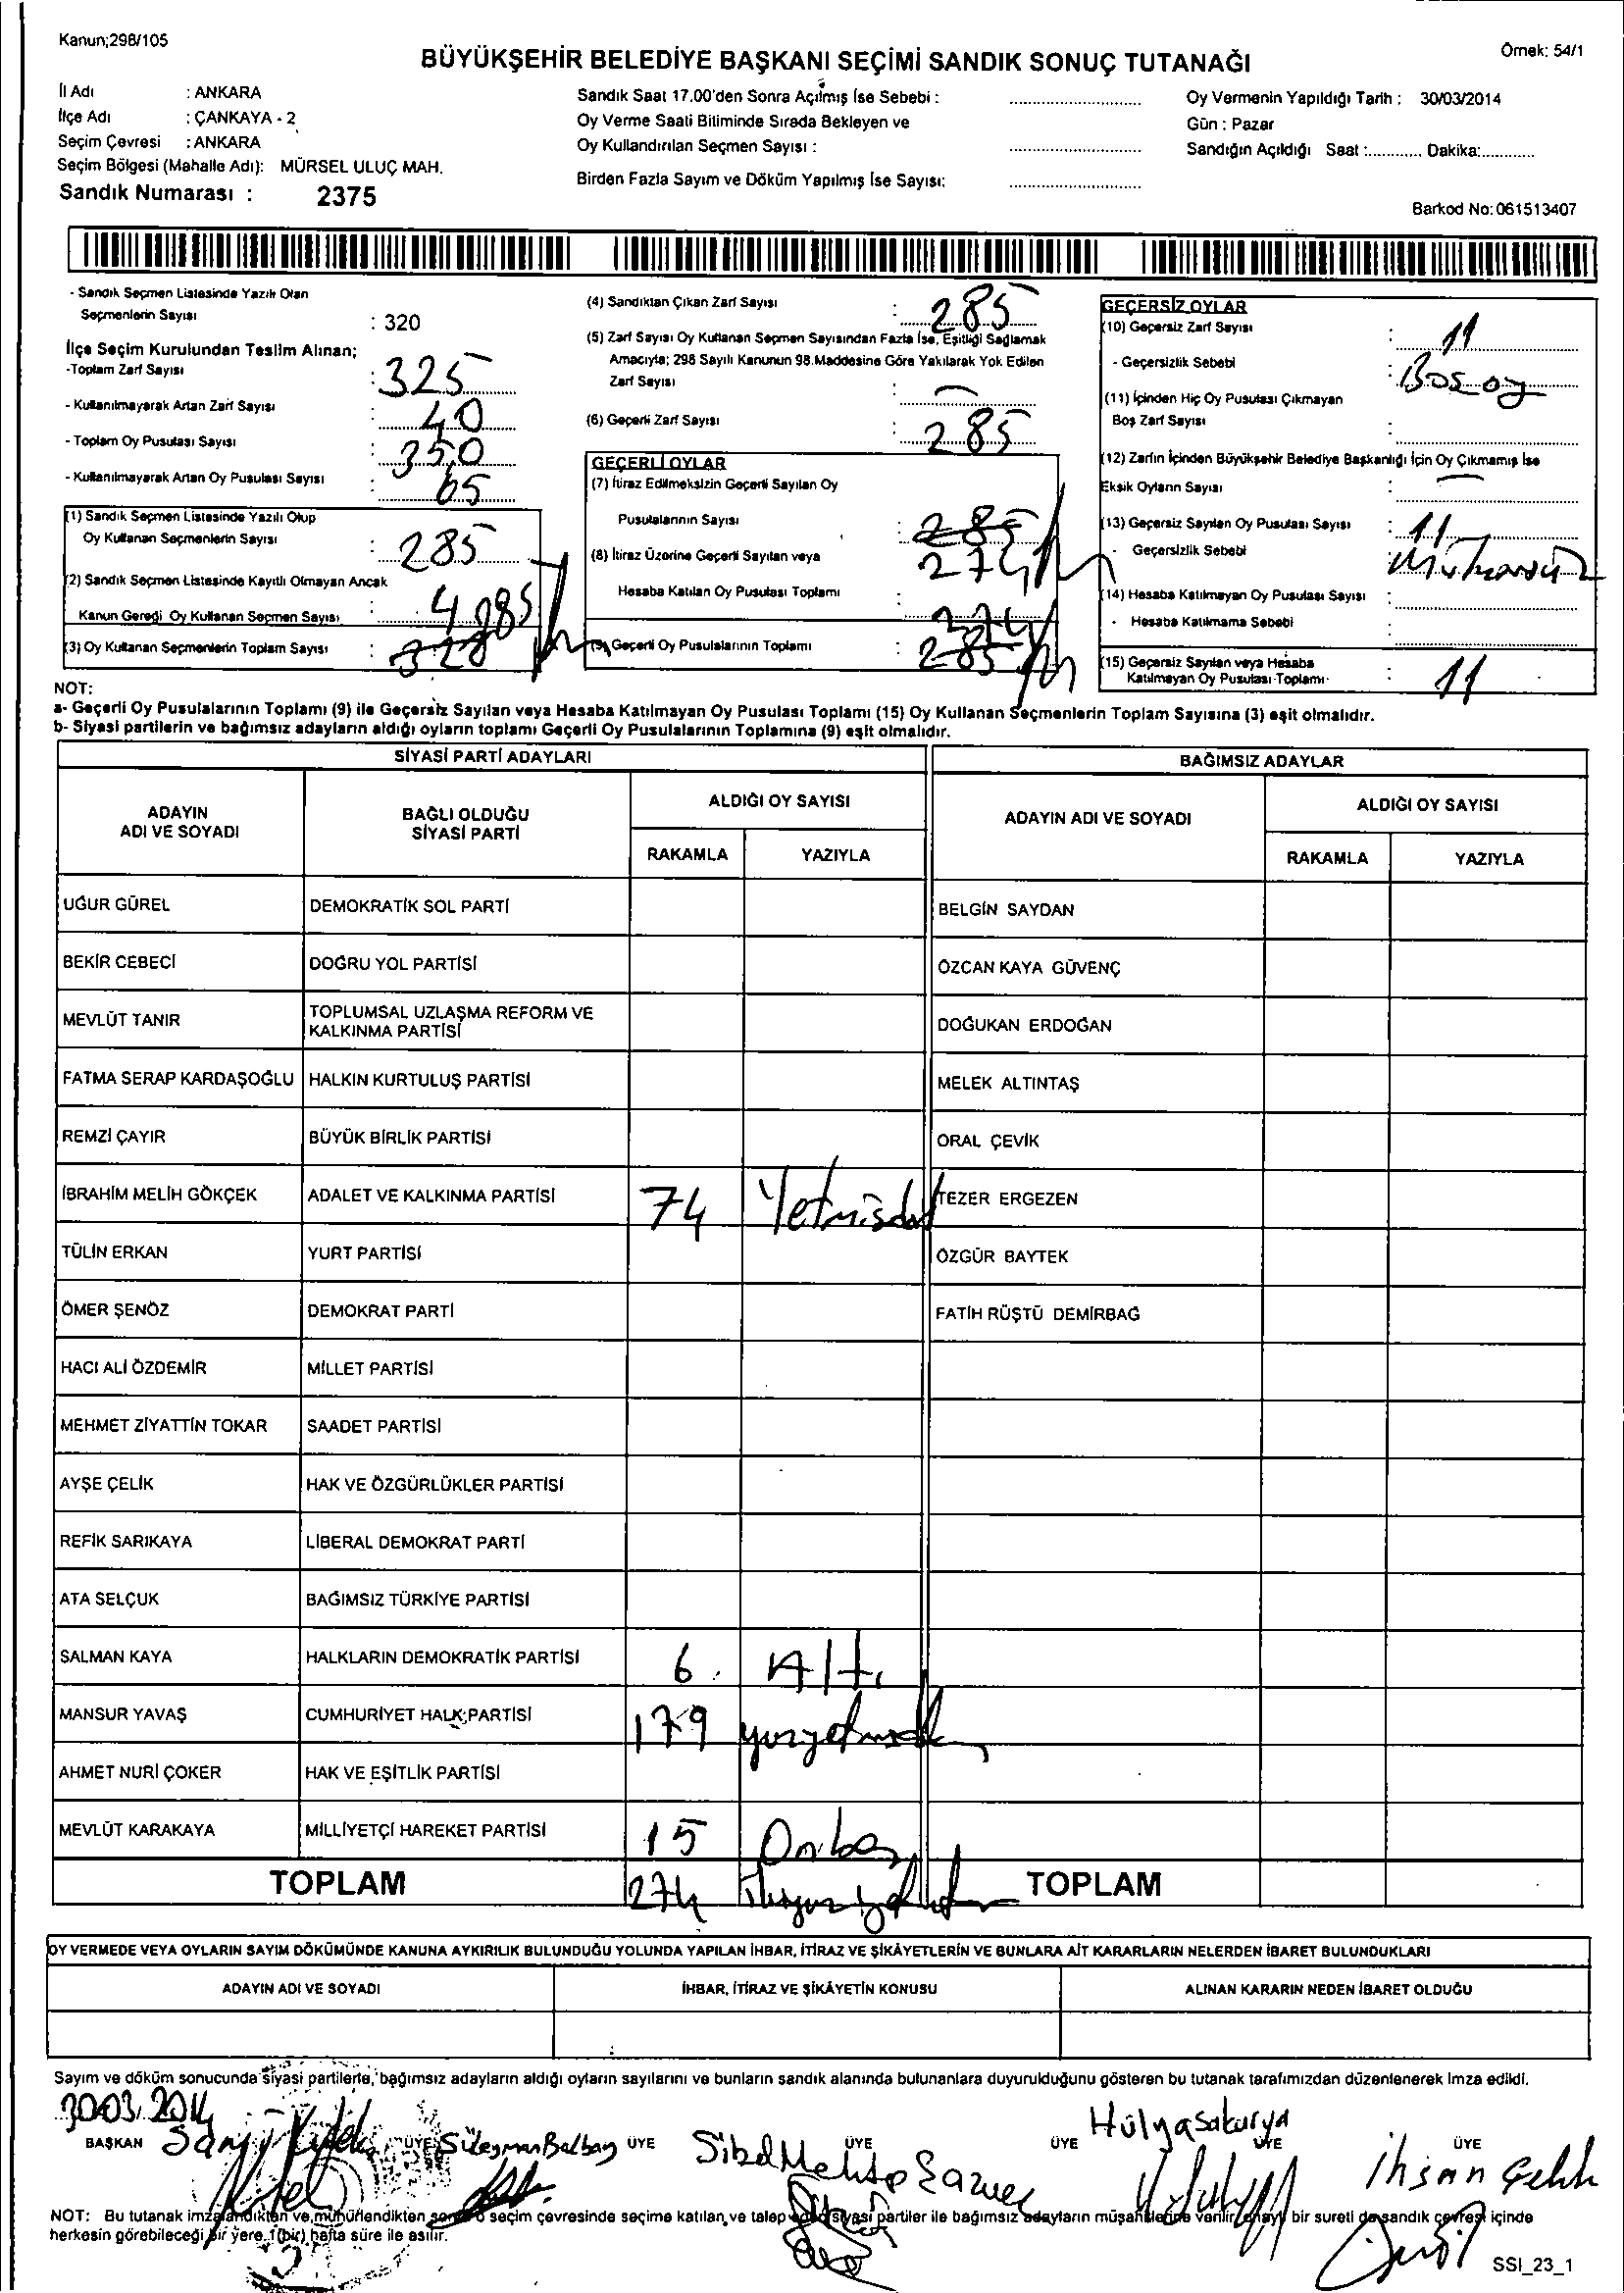 Kanun;298/105
Örnek: 54/1
BÜYÜKŞEHİR BELEDİYE BAŞKANI SEÇİMİ SANDIK SONUÇ TUTANAĞI
İl Adı : ANKARA
İlçe Adı : ÇANKAYA - 2
Seçim Çevresi : ANKARA
Seçim Bölgesi (Mahalle Adı): MÜRSEL ULUÇ MAH.
Sandık Numarası : 2375
Sandık Saat 17.00'den Sonra Açılmış İse Sebebi :
Oy Verme Saati Bitiminde Sırada Bekleyen ve
Oy Kullandırılan Seçmen Sayısı :
Birden Fazla Sayım ve Döküm Yapılmış İse Sayısı:
Oy Vermenin Yapıldığı Tarih : 30/03/2014
Gün : Pazar
Sandığın Açıldığı Saat :............ Dakika:............
Barkod No: 061513407
- Sandık Seçmen Listesinde Yazılı Olan
Seçmenlerin Sayısı : 320
İlçe Seçim Kurulundan Teslim Alınan;
-Toplam Zarf Sayısı : 325
- Kullanılmayarak Artan Zarf Sayısı : 40
- Toplam Oy Pusulası Sayısı : 350
- Kullanılmayarak Artan Oy Pusulası Sayısı : 65
(1) Sandık Seçmen Listesinde Yazılı Olup
Oy Kullanan Seçmenlerin Sayısı : 285
(2) Sandık Seçmen Listesinde Kayıtlı Olmayan Ancak
Kanun Gereği Oy Kullanan Seçmen Sayısı : 4
285
(3) Oy Kullanan Seçmenlerin Toplam Sayısı : 328
(4) Sandıktan Çıkan Zarf Sayısı : 285
(5) Zarf Sayısı Oy Kullanan Seçmen Sayısından Fazla İse, Eşitliği Sağlamak
Amacıyla; 298 Sayılı Kanunun 98.Maddesine Göre Yakılarak Yok Edilen
Zarf Sayısı : —
(6) Geçerli Zarf Sayısı : 285
GEÇERLİ OYLAR
(7) İtiraz Edilmeksizin Geçerli Sayılan Oy
Pusulalarının Sayısı : 285
274
(8) İtiraz Üzerine Geçerli Sayılan veya
Hesaba Katılan Oy Pusulası Toplamı :
274
(9) Geçerli Oy Pusulalarının Toplamı : 285
GEÇERSİZ OYLAR
(10) Geçersiz Zarf Sayısı : 11
- Geçersizlik Sebebi : Boş oy
(11) İçinden Hiç Oy Pusulası Çıkmayan
Boş Zarf Sayısı :
(12) Zarfın İçinden Büyükşehir Belediye Başkanlığı İçin Oy Çıkmamış İse
Eksik Oyların Sayısı : —
(13) Geçersiz Sayılan Oy Pusulası Sayısı : 11
- Geçersizlik Sebebi : Mühürsüz
(14) Hesaba Katılmayan Oy Pusulası Sayısı :
- Hesaba Katılmama Sebebi :
(15) Geçersiz Sayılan veya Hesaba
Katılmayan Oy Pusulası Toplamı : 11
NOT:
a- Geçerli Oy Pusulalarının Toplamı (9) ile Geçersiz Sayılan veya Hesaba Katılmayan Oy Pusulası Toplamı (15) Oy Kullanan Seçmenlerin Toplam Sayısına (3) eşit olmalıdır.
b- Siyasi partilerin ve bağımsız adayların aldığı oyların toplamı Geçerli Oy Pusulalarının Toplamına (9) eşit olmalıdır.
SİYASİ PARTİ ADAYLARI
BAĞIMSIZ ADAYLAR
ADAYIN ADI VE SOYADI
BAĞLI OLDUĞU SİYASİ PARTİ
ALDIĞI OY SAYISI
RAKAMLA YAZIYLA
ADAYIN ADI VE SOYADI
ALDIĞI OY SAYISI
RAKAMLA YAZIYLA
UĞUR GÜREL DEMOKRATİK SOL PARTİ BELGİN SAYDAN
BEKİR CEBECİ DOĞRU YOL PARTİSİ ÖZCAN KAYA GÜVENÇ
MEVLÜT TANIR TOPLUMSAL UZLAŞMA REFORM VE KALKINMA PARTİSİ DOĞUKAN ERDOĞAN
FATMA SERAP KARDAŞOĞLU HALKIN KURTULUŞ PARTİSİ MELEK ALTINTAŞ
REMZİ ÇAYIR BÜYÜK BİRLİK PARTİSİ ORAL ÇEVİK
İBRAHİM MELİH GÖKÇEK ADALET VE KALKINMA PARTİSİ 74 Yetmişdört TEZER ERGEZEN
TÜLİN ERKAN YURT PARTİSİ ÖZGÜR BAYTEK
ÖMER ŞENÖZ DEMOKRAT PARTİ FATİH RÜŞTÜ DEMİRBAĞ
HACI ALİ ÖZDEMİR MİLLET PARTİSİ
MEHMET ZİYATTİN TOKAR SAADET PARTİSİ
AYŞE ÇELİK HAK VE ÖZGÜRLÜKLER PARTİSİ
REFİK SARIKAYA LİBERAL DEMOKRAT PARTİ
ATA SELÇUK BAĞIMSIZ TÜRKİYE PARTİSİ
SALMAN KAYA HALKLARIN DEMOKRATİK PARTİSİ 6 Altı
MANSUR YAVAŞ CUMHURİYET HALK PARTİSİ 179
AHMET NURİ ÇOKER HAK VE EŞİTLİK PARTİSİ
MEVLÜT KARAKAYA MİLLİYETÇİ HAREKET PARTİSİ 15 Onbeş
TOPLAM 274 TOPLAM
OY VERMEDE VEYA OYLARIN SAYIM DÖKÜMÜNDE KANUNA AYKIRILIK BULUNDUĞU YOLUNDA YAPILAN İHBAR, İTİRAZ VE ŞİKÂYETLERİN VE BUNLARA AİT KARARLARIN NELERDEN İBARET BULUNDUKLARI
ADAYIN ADI VE SOYADI İHBAR, İTİRAZ VE ŞİKÂYETİN KONUSU ALINAN KARARIN NEDEN İBARET OLDUĞU
Sayım ve döküm sonucunda siyasi partilerle, bağımsız adayların aldığı oyların sayılarını ve bunların sandık alanında bulunanlara duyurulduğunu gösteren bu tutanak tarafımızdan düzenlenerek imza edildi.
30.03.2014
BAŞKAN ÜYE Süleyman Balbay ÜYE Sibel Mehtap ÜYE ÜYE Hülya Sakarya ÜYE ÜYE İhsan Çelik
NOT: Bu tutanak imzalandıktan ve mühürlendikten sonra o seçim çevresinde seçime katılan ve talep eden siyasi partiler ile bağımsız adayların müşahitlerine verilir, onaylı bir sureti de sandık çevresi içinde
herkesin görebileceği bir yere 1 (bir) hafta süre ile asılır.
SSI_23_1